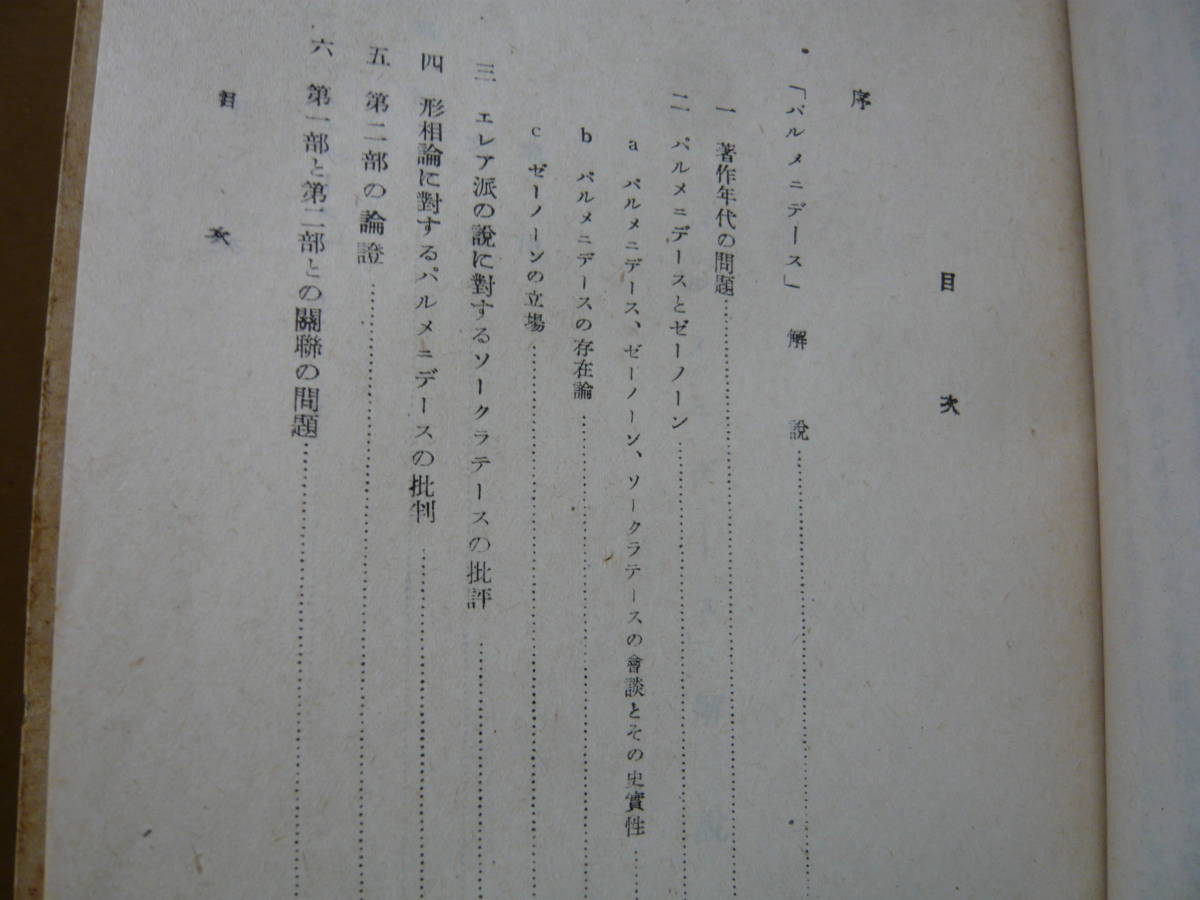 目次
序
「パルメニデース」解說
一 著作年代の問題
二 パルメニデースとゼーノーン
a パルメニデース、ゼーノーン、ソークラテースの會談とその史實性
b パルメニデースの存在論
c ゼーノーンの立場
三 エレア派の說に對するソークラテースの批評
四 形相論に對するパルメニデースの批判
五 第二部の論證
六 第一部と第二部との關聯の問題
目次